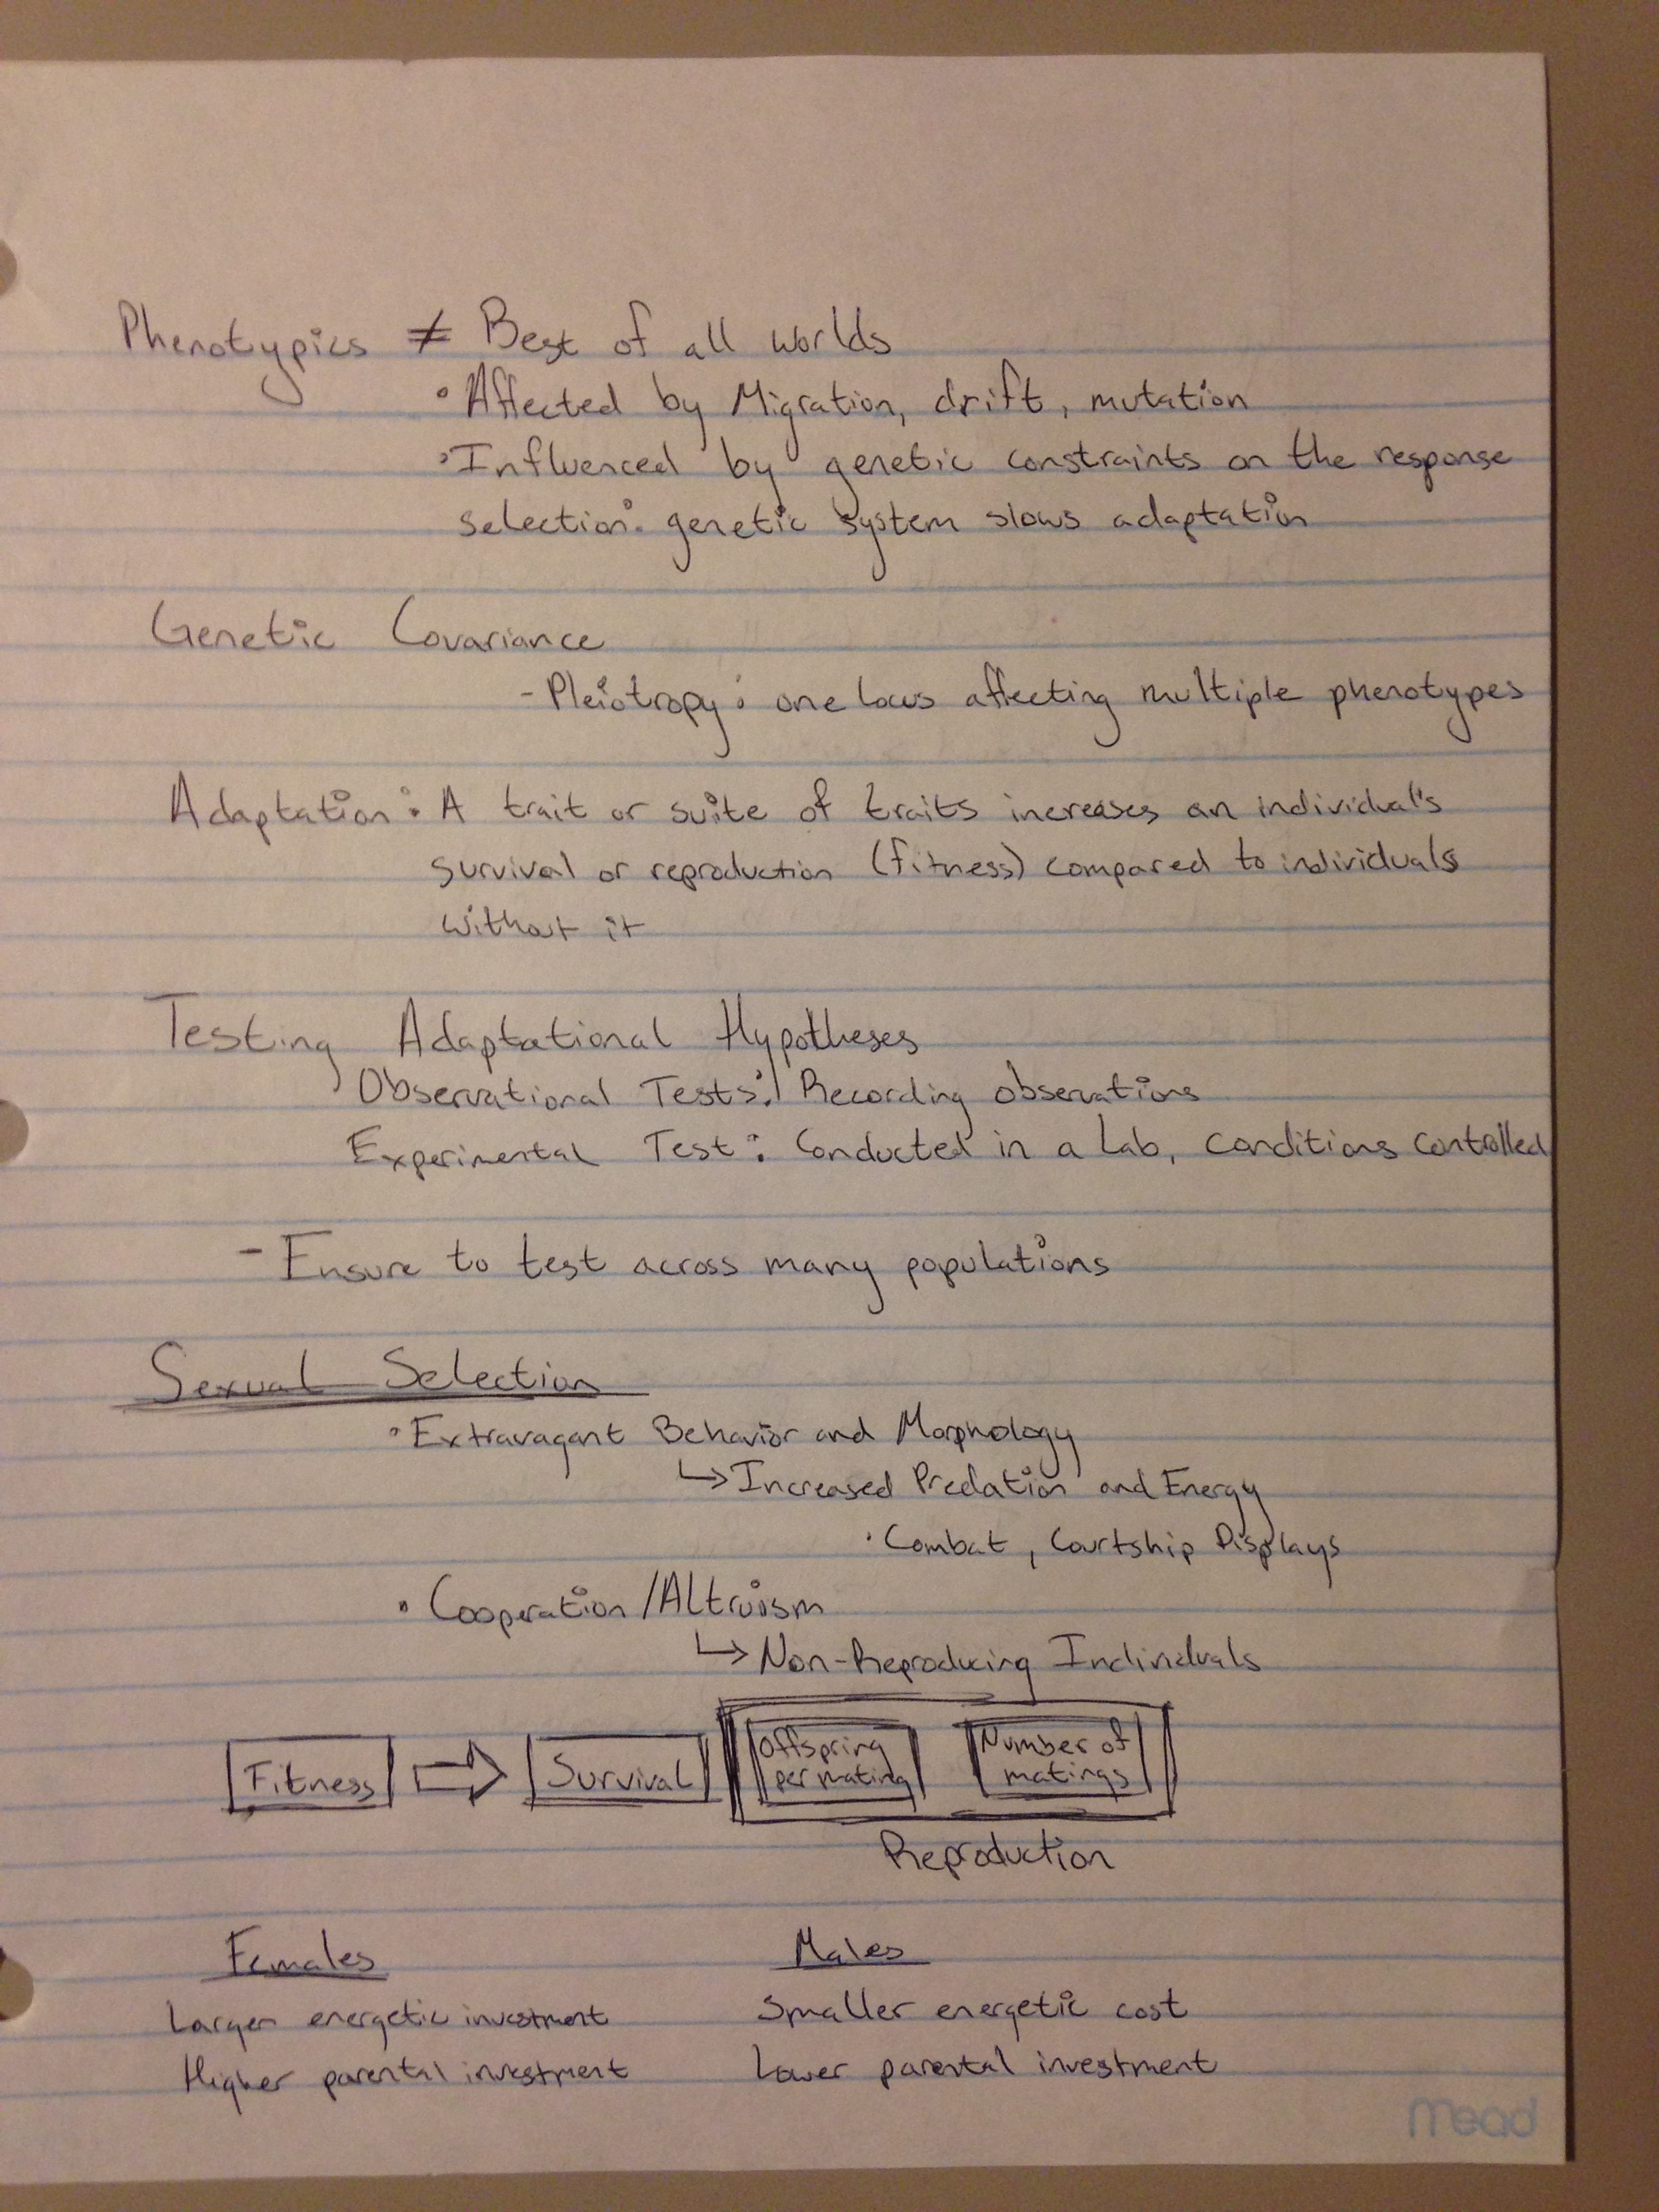 Phenotypics ≠ Best of all worlds
• Affected by Migration, drift, mutation
• Influenced by genetic constraints on the response
selection: genetic system slows adaptation
Genetic Covariance
- Pleiotropy: one locus affecting multiple phenotypes
Adaptation: A trait or suite of traits increases an individual's
survival or reproduction (fitness) compared to individuals
without it
Testing Adaptational Hypotheses
Observational Tests: Recording observations
Experimental Test: Conducted in a Lab, conditions controlled
- Ensure to test across many populations
Sexual Selection
• Extravagant Behavior and Morphology
↳ Increased Predation and Energy
• Combat, Courtship Displays
• Cooperation/Altruism
↳ Non-Reproducing Individuals
Fitness ⇒ Survival Offspring per mating Number of matings
Reproduction
Females Males
Larger energetic investment Smaller energetic cost
Higher parental investment Lower parental investment
Mead